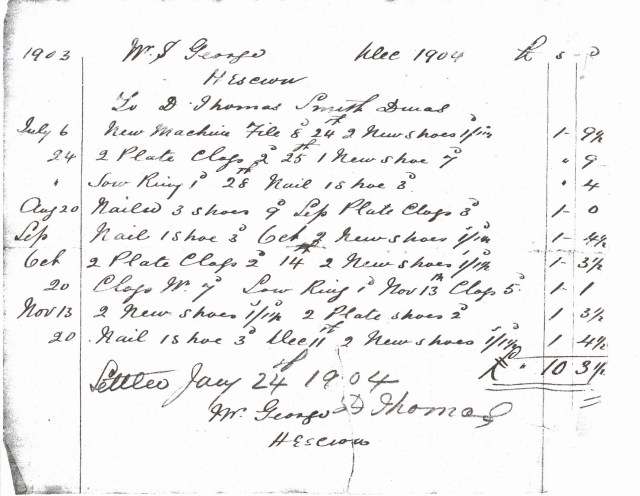 1903 Wm J George Dec 1904 £ s d
Hescwn
To D. Thomas Smith Dinas
July 6 New Machine File 8d 24th 2 New shoes 1/1½ 1- 9½
24 2 Plate Clogs 2d 25th 1 New shoe 7d " 9
" Sow Ring 1d 28th Nail 1 shoe 3d " 4
Aug 20 Nailed 3 shoes 9d Sep Plate Clogs 3d 1- 0
Sep Nail 1 shoe 3d Octb 2 New shoes 1/1½ 1- 4½
Octb 2 Plate Clogs 2d 14th 2 New shoes 1/1½ 1- 3½
20 Clogs W. 7d Sow Ring 1d Nov 13th Clogs 5d 1- 1
Nov 13 2 New shoes 1/1½ 2 Plate shoes 2d 1 3½
20 Nail 1 shoe 3d Dec 11th 2 New shoes 1/1½ 1 4½
£ " 10 3½
Settled Jany 24th 1904
Mr. George D Thomas
Hescwn